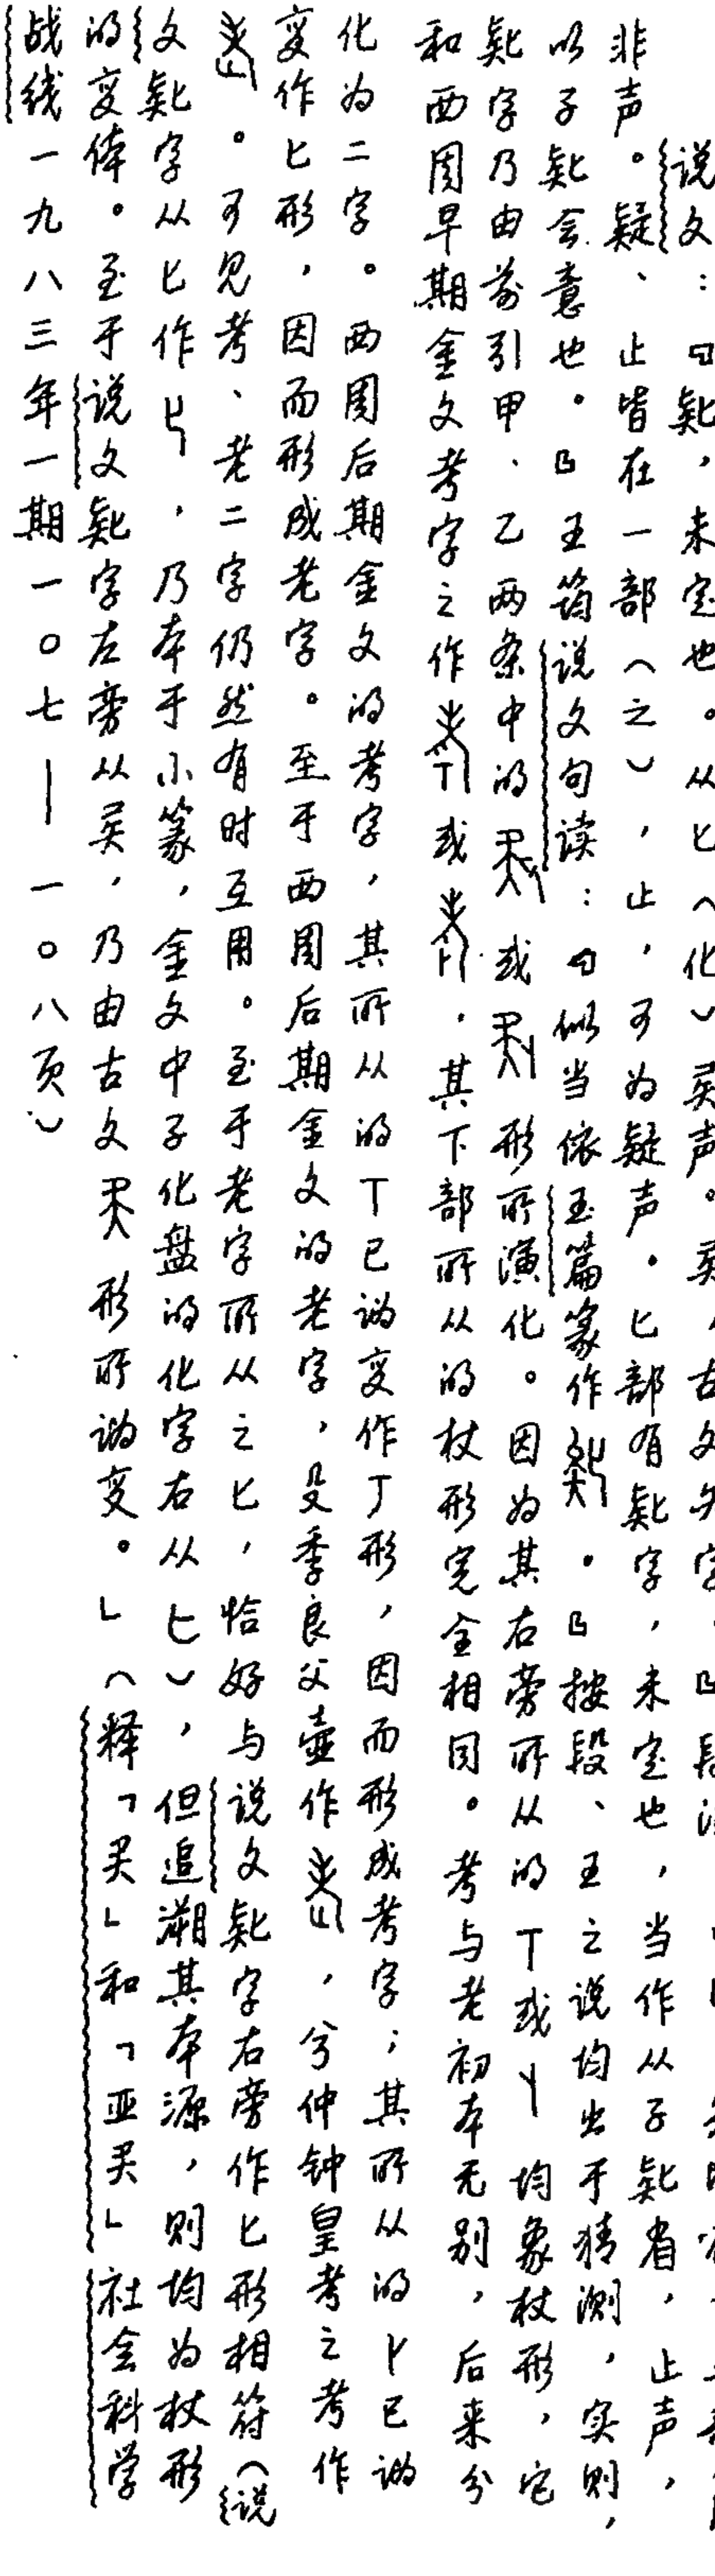 说文：「𠤕，未定也。从匕（化）𠤕声。𠤕，古文矢字，」段注
非声。疑、止皆在一部（之），止，可为疑声。匕部有𠤕字，未定也，当作从子𠤕省，止声，
以子𠤕会意也。」王筠说文句读：「似当依玉篇篆作。」按段、王之说均出于猜测，实则，
𠤕字乃由前引甲、乙两条中的或形所演化。因为其右旁所从的丅或丫均象杖形，它
和西周早期金文考字之作或，其下部所从的杖形完全相同。考与老初本无别，后来分
化为二字。西周后期金文的考字，其所从的丅已讹变作丁形，因而形成考字；其所从的卜已讹
变作匕形，因而形成老字。至于西周后期金文的老字，殳季良父壶作，兮仲钟皇考之考作
。可见考、老二字仍然有时互用。至于老字所从之匕，恰好与说文𠤕字右旁作匕形相符（说
文𠤕字从匕作，乃本于小篆，金文中子化盘的化字右从匕），但追溯其本源，则均为杖形
的变体。至于说文𠤕字左旁从，乃由古文形所讹变。」（释「」和「亚」社会科学
战线一九八三年一期一〇七——一〇八页）